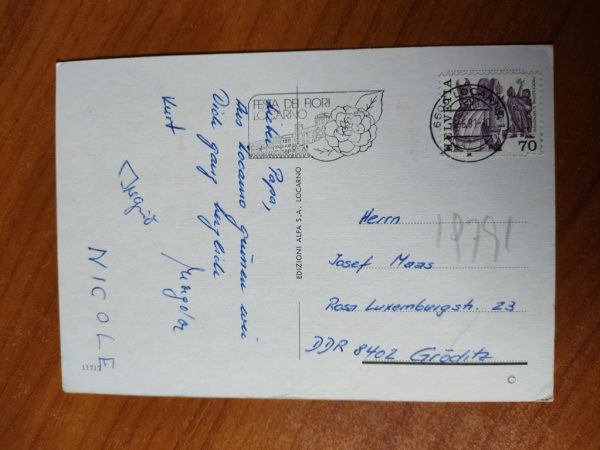 FESTA DEI FIORI
LOCARNO
6600 LOCARNO
HELVETIA
70
Lieber Papa,
Aus Locarno grüssen wir
Dich ganz herzlich
Kurt
Ingrid
NICOLE
EDIZIONI ALFA S.A. LOCARNO
Herrn
Josef Maas
Rosa Luxemburgstr. 23
DDR 8402 Gröditz
11717
©